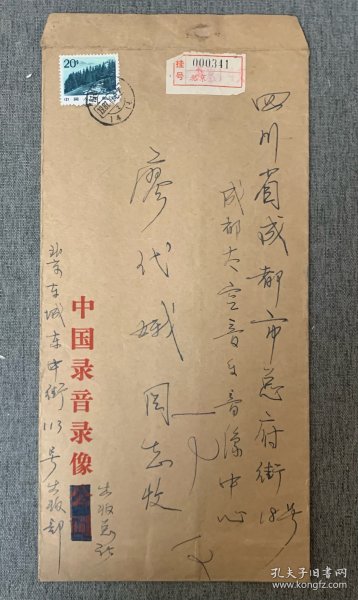 20分
挂号
000341
北京
四川省成都市总府街18号
成都太空音乐音像中心
廖代娥同志收
中国录音录像
出版总社
北京东城东中街113号出版部
孔夫子旧书网